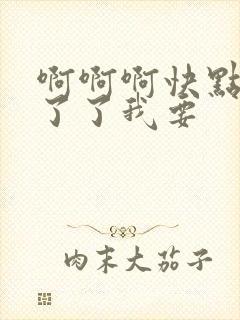 啊啊啊快點
了了我要
肉末大茄子